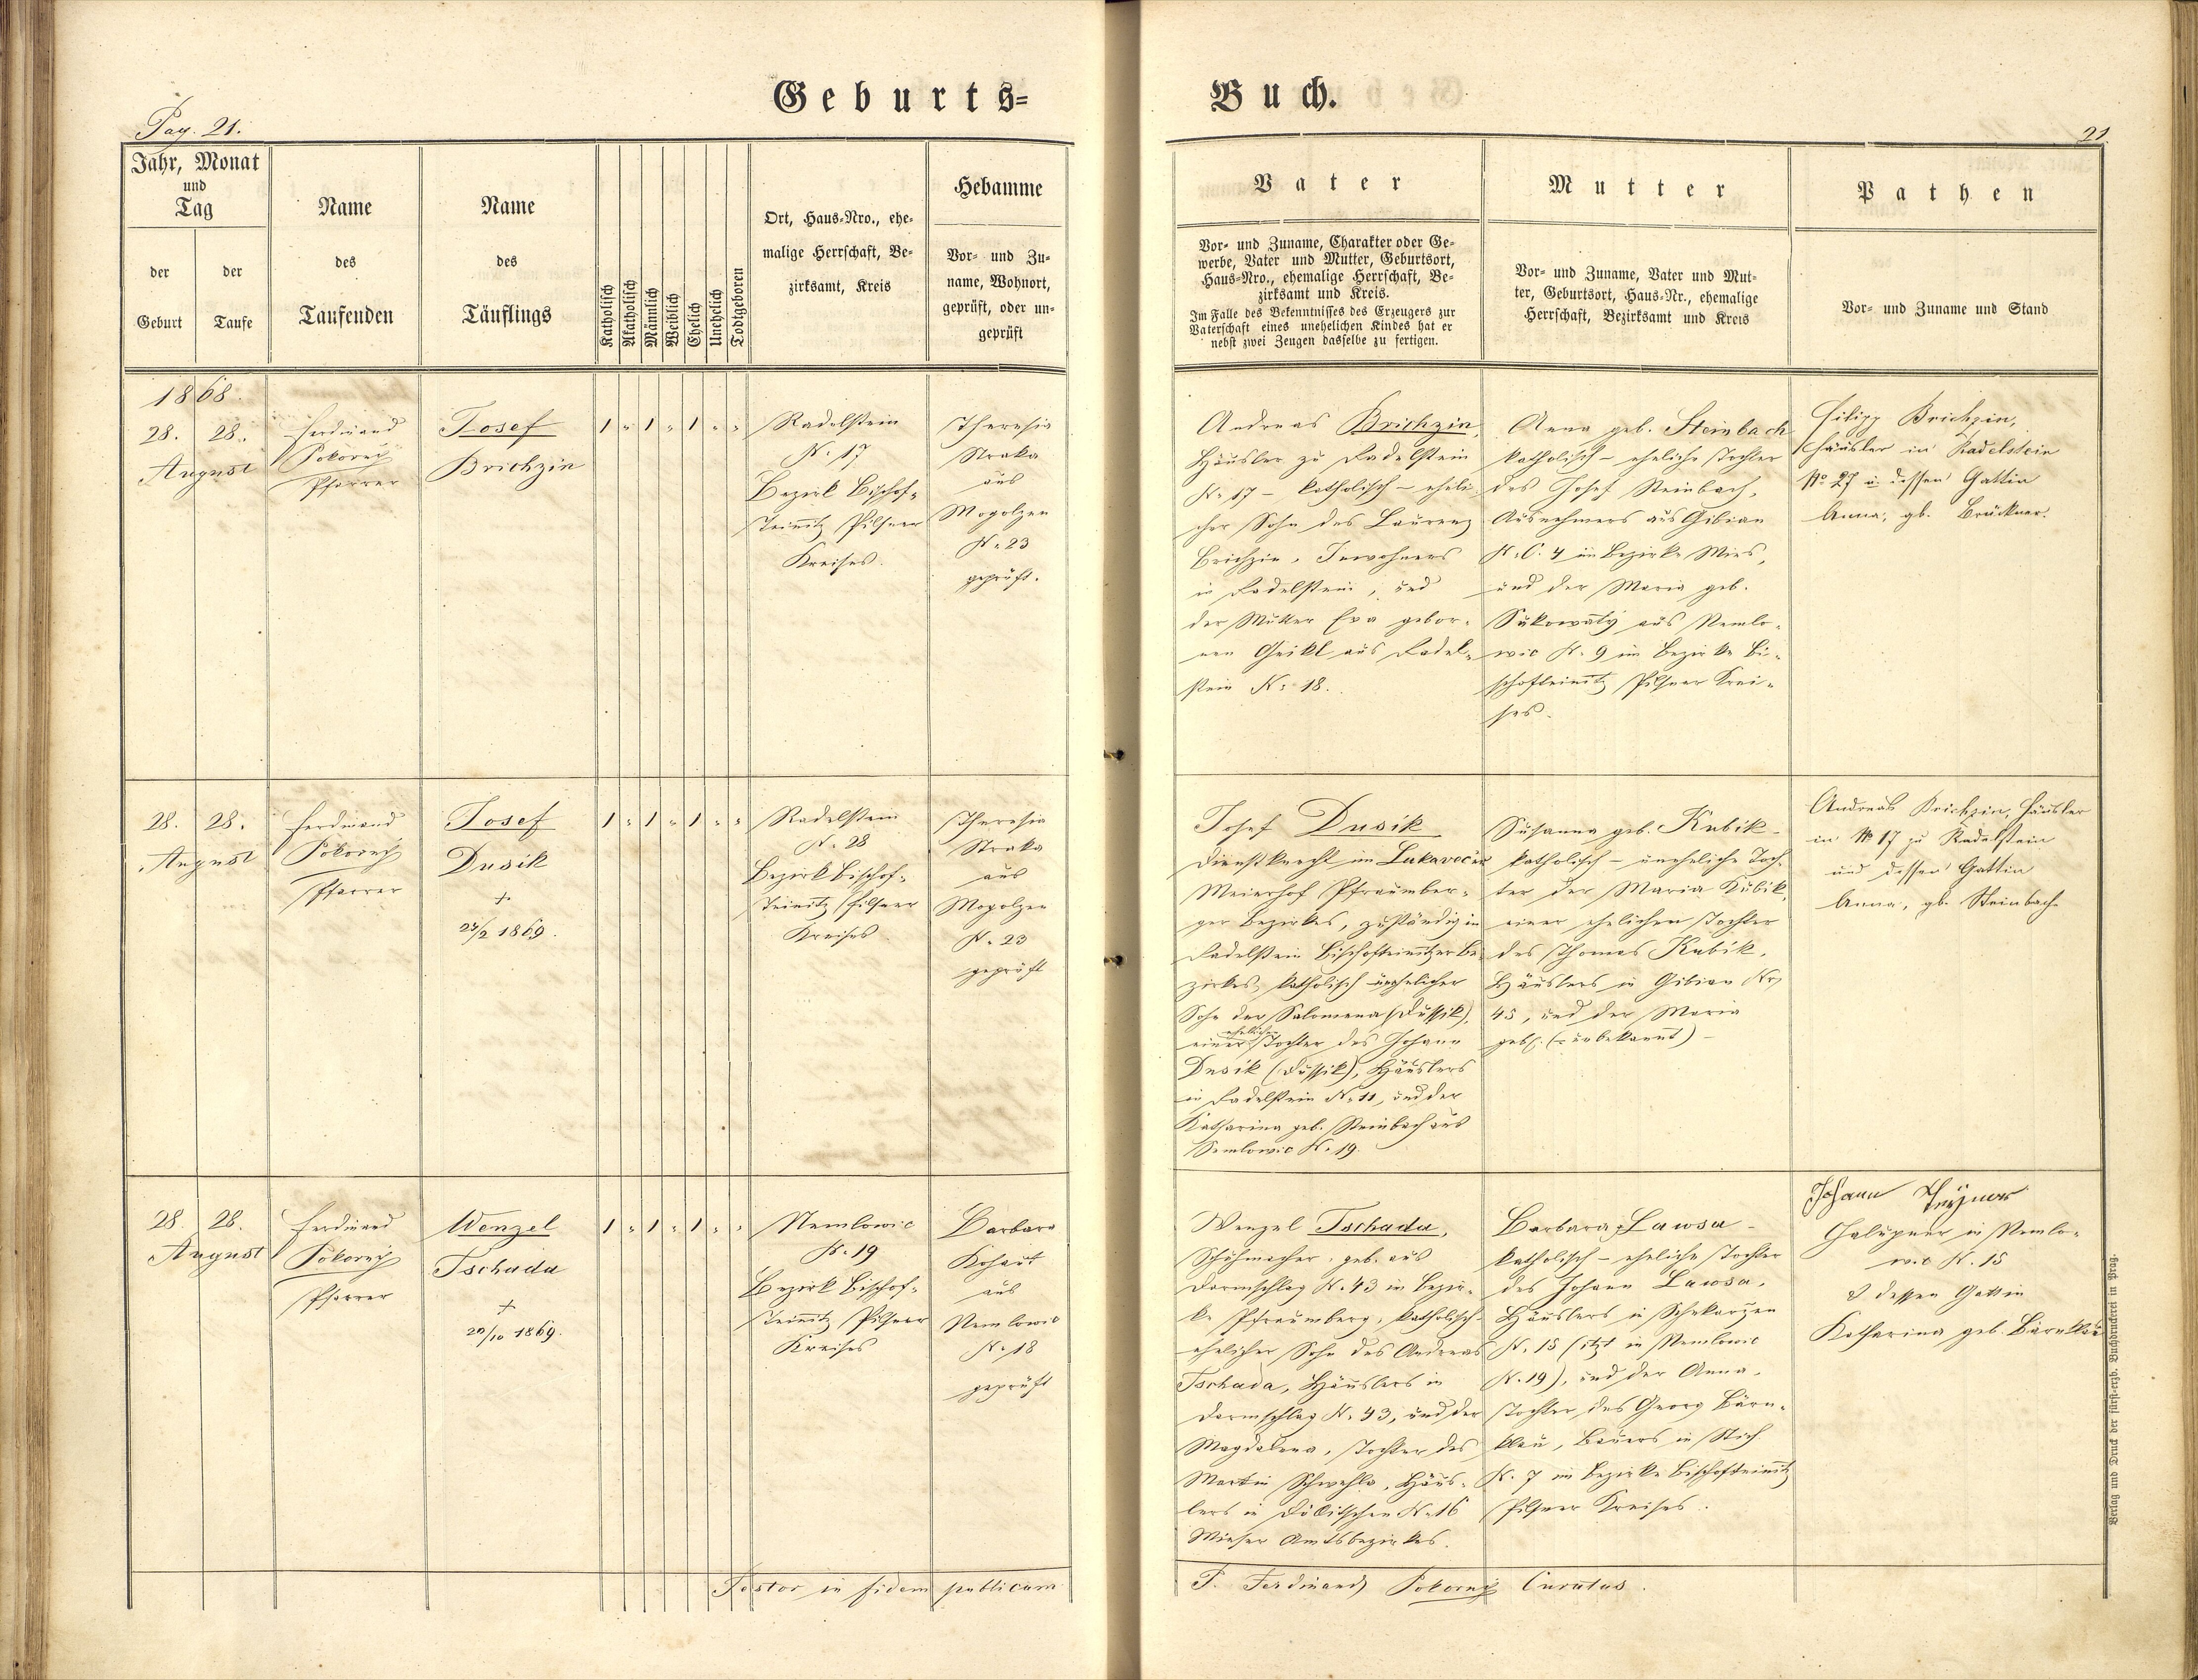 Geburts=
Buch.
Pag. 21.
21
Jahr, Monat
und
Tag
der
Geburt
der
Taufe
Name
des
Taufenden
Name
des
Täuflings
Katholisch
Akatholisch
Männlich
Weiblich
Ehelich
Unehelich
Todtgeboren
Ort, Haus-Nro., ehe-
malige Herrschaft, Be-
zirksamt, Kreis
Hebamme
Vor- und Zu-
name, Wohnort,
geprüft, oder un-
geprüft
Vater
Vor- und Zuname, Charakter oder Ge-
werbe, Vater und Mutter, Geburtsort,
Haus-Nro., ehemalige Herrschaft, Be-
zirksamt und Kreis.
Im Falle des Bekenntnisses des Erzeugers zur
Vaterschaft eines unehelichen Kindes hat er
nebst zwei Zeugen dasselbe zu fertigen.
Mutter
Vor- und Zuname, Vater und Mut-
ter, Geburtsort, Haus-Nr., ehemalige
Herrschaft, Bezirksamt und Kreis
Pathen
Vor- und Zuname und Stand
1868.
28. 28.
August
Ferdinand
Pokorný
Pfarrer
Josef
Brichzin
1 " 1 " 1 " "
Radelstein
N. 17
Bezirk Bischof=
Teinitz Pilsner
Kreises.
Theresia
Straka
aus
Mogolzen
N. 23
geprüft.
Andreas Brichzin,
Häusler zu Radelstein
N. 17 – katholisch – eheli
cher Sohn des Laurenz
Brichzin, Inwohners
in Radelstein, und
der Mutter Eva gebor=
nen Geikl aus Radel=
stein N. 18.
Anna geb. Steinbach
katholisch – eheliche Tochter
des Josef Steinbach,
Ausnehmers aus Gibian
N. C. 4 im Bezirke Mies,
und der Maria geb.
Sukowatý aus Nemlo=
wic N. 9 im Bezirke Bi=
schofteinitz Pilsner Krei=
ses.
Filipp Brichzin,
Häusler in Radelstein
No 27 u. dessen Gattin
Anna, gb. Brückner.
28. 28.
August
Ferdinand
Pokorný
Pfarrer
Josef
Dusik
+
23/2 1869.
1 " 1 " 1 " "
Radelstein
N. 28
Bezirk Bischof=
Teinitz Pilsner
Kreises
Theresia
Straka
aus
Mogolzen
N. 23
geprüft
Josef Dusik
Dienstknecht im Lukavočer
Meierhof Pfraumber=
ger Bezirkes, zuständig in
Radelstein Bischofteinitzer Be
zirkes, katholisch unehelicher
Sohn der Salomena (Dussik),
ehelichen
einer Tochter des Johann
Dusik (Dussik), Häuslers
in Radelstein N. 11, und der
Katharina geb. Steinbach aus
Semlowic N. 19.
Susanna geb. Kubik –
katholisch – uneheliche Toch=
ter der Maria Kubik,
einer ehelichen Tochter
des Thomas Kubik,
Häuslers in Gibian Nr
45, und der Maria
geb. (– unbekannt) –
Andreas Brichzin, Häusler
in No 17 zu Radelstein
und dessen Gattin
Anna, gb. Steinbach
28. 28.
August
Ferdinand
Pokorný
Pfarrer
Wenzel
Tschada
+
20/10 1869.
1 " 1 " 1 " "
Nemlowic
N. 19
Bezirk Bischof=
Teinitz Pilsner
Kreises
Barbara
Kohaut
aus
Nemlowic
N. 18
geprüft
Wenzel Tschada,
Schuhmacher, geb. aus
Darmschlag N. 43 in Bezir=
ke Pfraumberg, katholisch–
ehelicher Sohn des Andreas
Tschada, Häuslers in
Darmschlag N. 43, und der
Magdalena, Tochter des
Martin Schwehla, Häus=
lers in N. 16
Mieser Amtsbezirkes.
Barbara Lawsa –
katholisch – eheliche Tochter
des Johann Lawsa,
Häuslers in
N. 15 (itzt in Nemlowic
N. 19), und der Anna,
Tochter des Georg Bärn=
klau, Bauers in Stich
N. 7 im Bezirke Bischofteinitz
Pilsner Kreises.
Johann
Chalupner in Nemlo=
wic N. 15
& dessen Gattin
Katharina geb. Bärnklau
Testor in fidem publicam
P. Ferdinand Pokorný Curatus.
Verlag und Druck der fürst-erzb. Buchdruckerei in Prag.